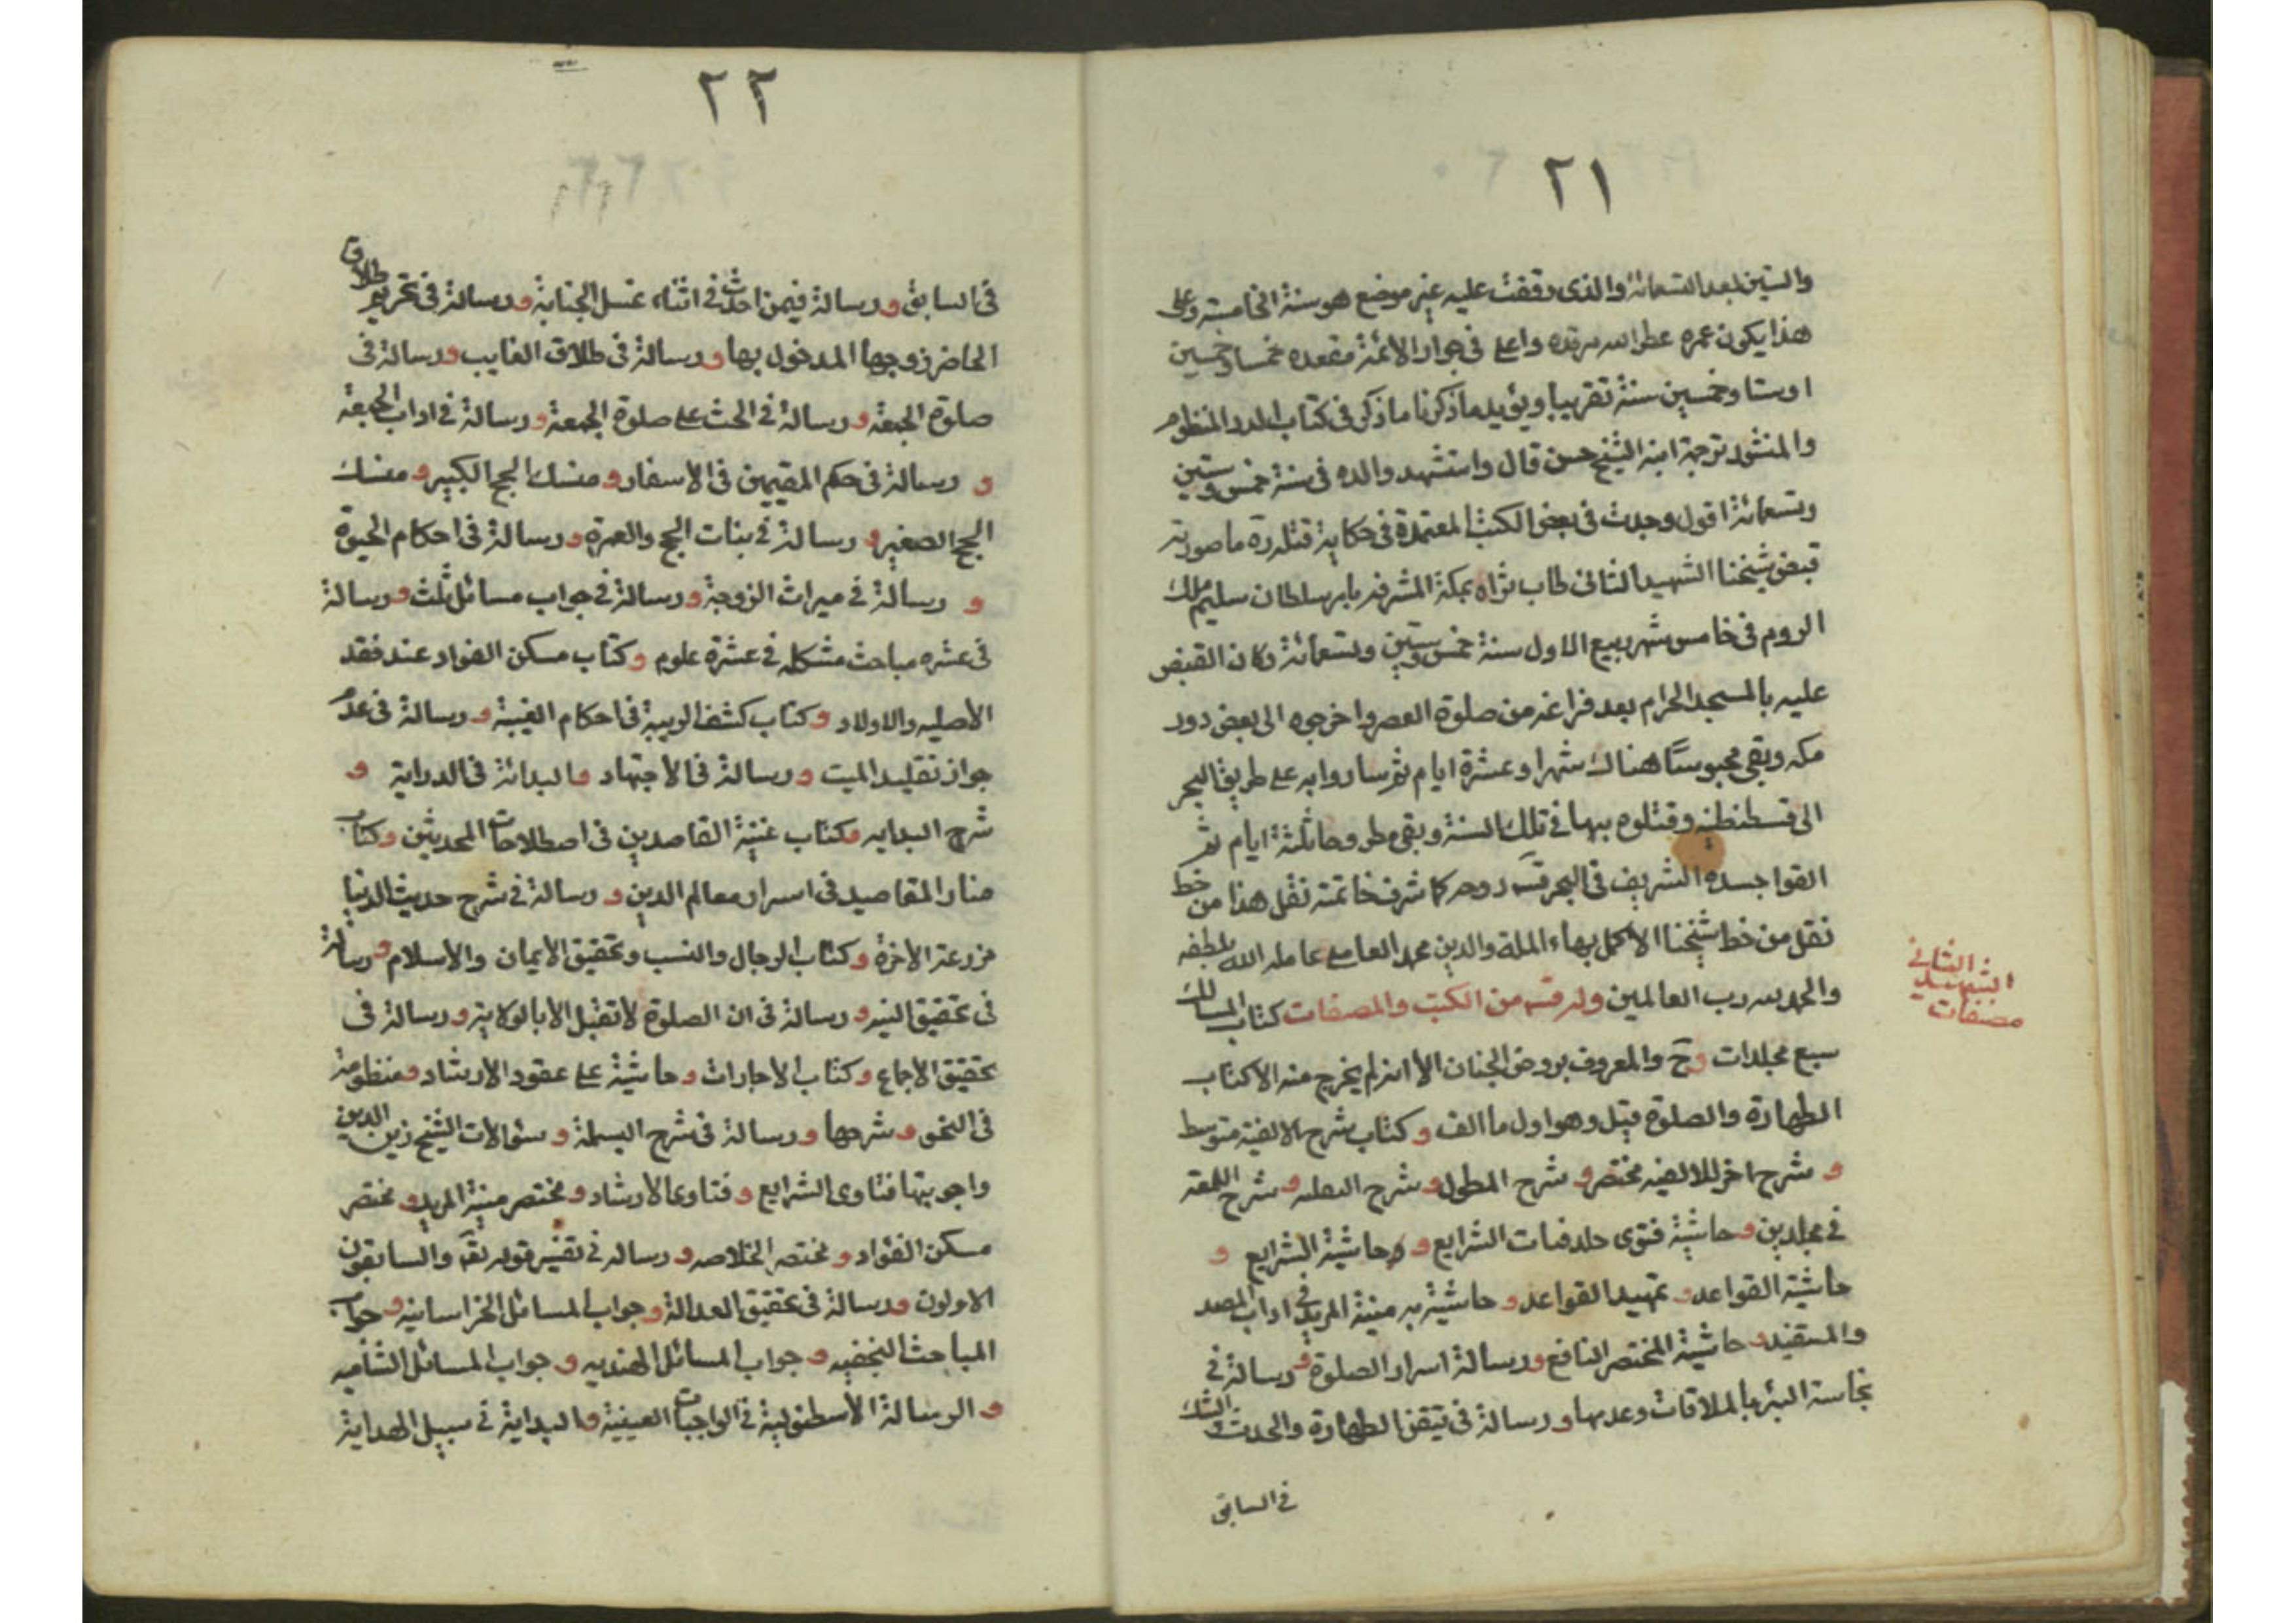 ٢١
والستين بعد التسعمائة والذى وقفت عليه غير موضع هو سنة الخامسة وعلى
هذا يكون عمره عطر الله مرقده واعلى فى جوار الائمة مقعده خمسا وخمسين
اوستا وخمسين سنة تقريبا ويؤيد ما ذكرنا ما ذكر فى كتاب الدر المنظوم
والمنثور ترجمة ابنه الشيخ حسن قال واستشهد والده فى سنة خمس وستين
وتسعمائة اقول وجدت فى بعض الكتب المعتمدة فى حكاية قتله ره ما صورته
قبض شيخنا الشهيد الثانى طاب ثراه بمكة المشرفه بامر سلطان سليم ملك
الروم فى خامس شهر ربيع الاول سنة خمس وستين وتسعمائة وكان القبض
عليه بالمسجد الحرام بعد فراغه من صلوة العصر واخرجوه الى بعض دور
مكه وبقى محبوسا هناك شهرا وعشرة ايام ثم ساروا به على طريق البحر
الى قسطنطنه وقتلوه بها فى تلك السنة وبقى مطروحا ثلثة ايام ثم
القوا جسده الشريف فى البحر قسه روحه كما شرف خاتمته نقل هذا من خط
نقل من خط شيخنا الاكمل بهاء الملة والدين محمد العاملى عامله الله بلطفه
والحمد لله رب العالمين وله قسه من الكتب والمصنفات كتاب المسالك
سبع مجلدات وح والمعروف بروض الجنان الا انه لم يخرج منه الا كتاب
الطهارة والصلوة قيل وهو اول ما الف و كتاب شرح الالفية متوسط
و شرح اخر للالفيه مختصر و شرح المطول و شرح النفليه و شرح اللمعة
فى مجلدين و حاشية فتوى خلافيات الشرايع و وحاشية الشرايع و
حاشية القواعد و تمهيد القواعد و حاشية به منية المريد فى اداب المفيد
والمستفيد و حاشية المختصر النافع و رسالة اسرار الصلوة و رسالة فى
نجاسة البئر بالملاقات وعدمها و رسالة فى تيقن الطهارة والحدث والشك
فى السابق
الشهيد الثانى
مصنفات
٢٢
فى السابق و رسالة فيمن احدث فى اثناء غسل الجنابة و رسالة فى تحريم طلاق
الحاضر زوجها المدخول بها و رسالة فى طلاق الغايب و رسالة فى
صلوة الجمعة و رسالة فى الحث على صلوة الجمعة و رسالة فى اداب الجمعة
و رسالة فى حكم المقيمين فى الاسفار و منسك الحج الكبير و منسك
الحج الصغير و رسالة فى نيات الحج والعمرة و رسالة فى احكام الحبوة
و رسالة فى ميراث الزوجة و رسالة فى جواب مسائل ثلث و رسالة
فى عشره مباحث مشكله فى عشرة علوم و كتاب مسكن الفواد عند فقد
الأصليه والاولاد و كتاب كشف الريبة فى احكام الغيبة و رسالة فى عدم
جواز تقليد الميت و رسالة فى الاجتهاد و البدائة فى الدراية و
شرح البدايه و كتاب غنية القاصدين فى اصطلاحات المحدثين و كتاب
منار المقاصيد فى اسرار معالم الدين و رسالة فى شرح حديث الدنيا
مزرعة الاخرة و كتاب الرجال والنسب و تحقيق الايمان والاسلام و رسالة
فى تحقيق النيه و رسالة فى ان الصلوة لا تقبل الا بالولاية و رسالة فى
تحقيق الاجماع و كتاب الاجازات و حاشية على عقود الارشاد و منظومة
فى النحو و شرحها و رسالة فى شرح البسملة و سئوالات الشيخ زين الدين
واجوبتها فتاوى الشرايع و فتاوى الارشاد و مختصر منية المريد و مختصر
مسكن الفؤاد و مختصر الخلاصه و رساله فى تفسير قوله تعا والسابقون
الاولون و رسالة فى تحقيق العدالة و جواب المسائل الخراسانيه و جواب
المباحث النجفيه و جواب المسائل الهنديه و جواب المسائل الشاميه
و الرسالة الاسطنبولية فى الواجبات العينية و البداية فى سبيل الهداية